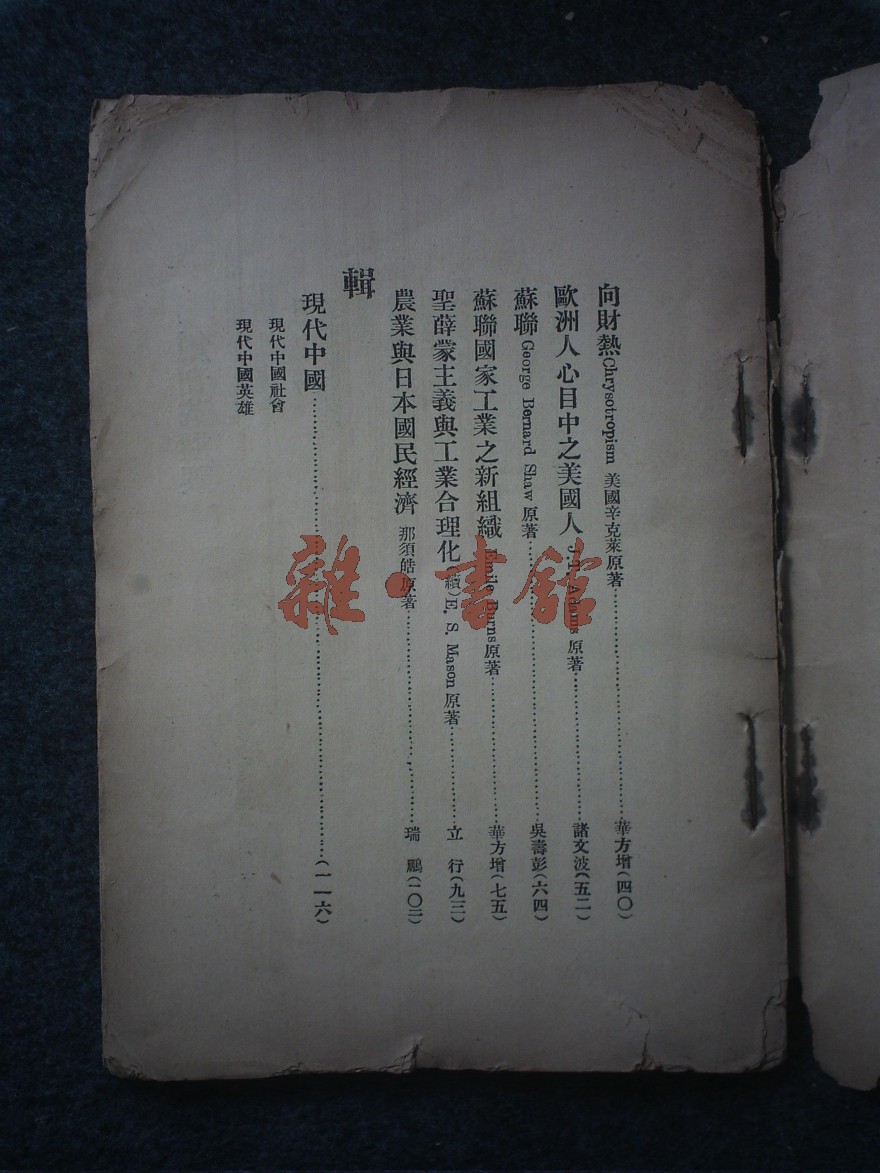 向財熱Chrysotropism 美國辛克萊原著……………………華方增(四〇)
歐洲人心目中之美國人 J.T. Adams 原著……………諸文波(五二)
蘇聯George Bernard Shaw 原著……………………吳壽彭(六四)
蘇聯國家工業之新組織 Emile Burns 原著……………華方增(七五)
聖薛蒙主義與工業合理化(續)E. S. Mason 原著…………立　行(九三)
農業與日本國民經濟 那須皓原著……………………瑞　鵬(一〇二)
輯
現代中國……………………………………(一一六)
現代中國社會
現代中國英雄
雜·書館